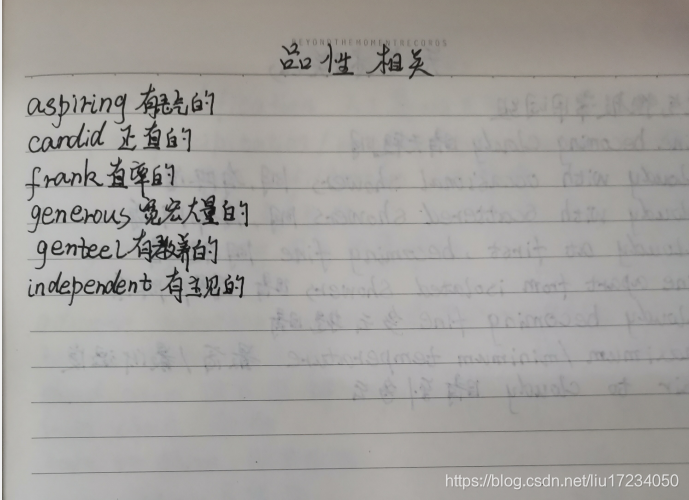 BEYONDTHEMOMENTRECORDS
品性 相关
aspiring 有志气的
candid 正直的
frank 直率的
generous 宽宏大量的
genteel 有教养的
independent 有主见的
https://blog.csdn.net/liu17234050